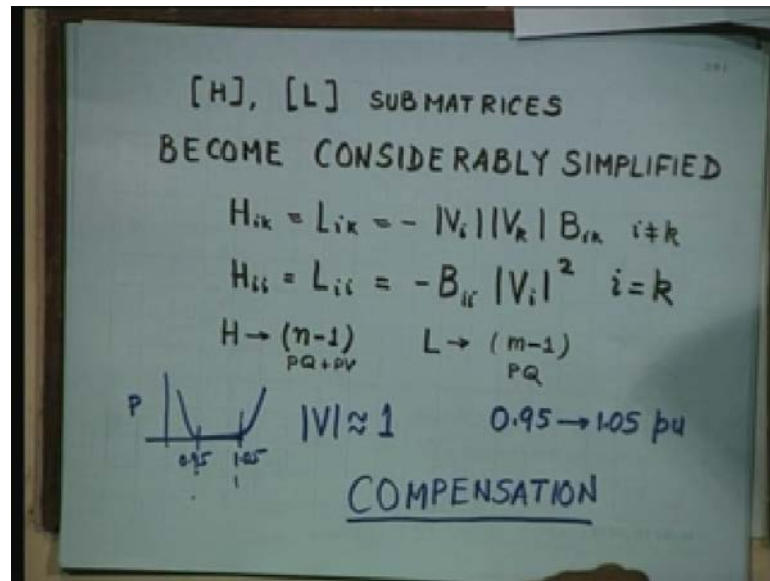 [H], [L] SUBMATRICES
BECOME CONSIDERABLY SIMPLIFIED
H_{ik} = L_{ik} = - |V_i| |V_k| B_{ik} i≠k
H_{ii} = L_{ii} = -B_{ii} |V_i|^2 i=k
H → (n-1) L → (m-1)
PQ+PV PQ
P |V| ≈ 1 0.95 → 1.05 pu
0.95 1.05
1
COMPENSATION